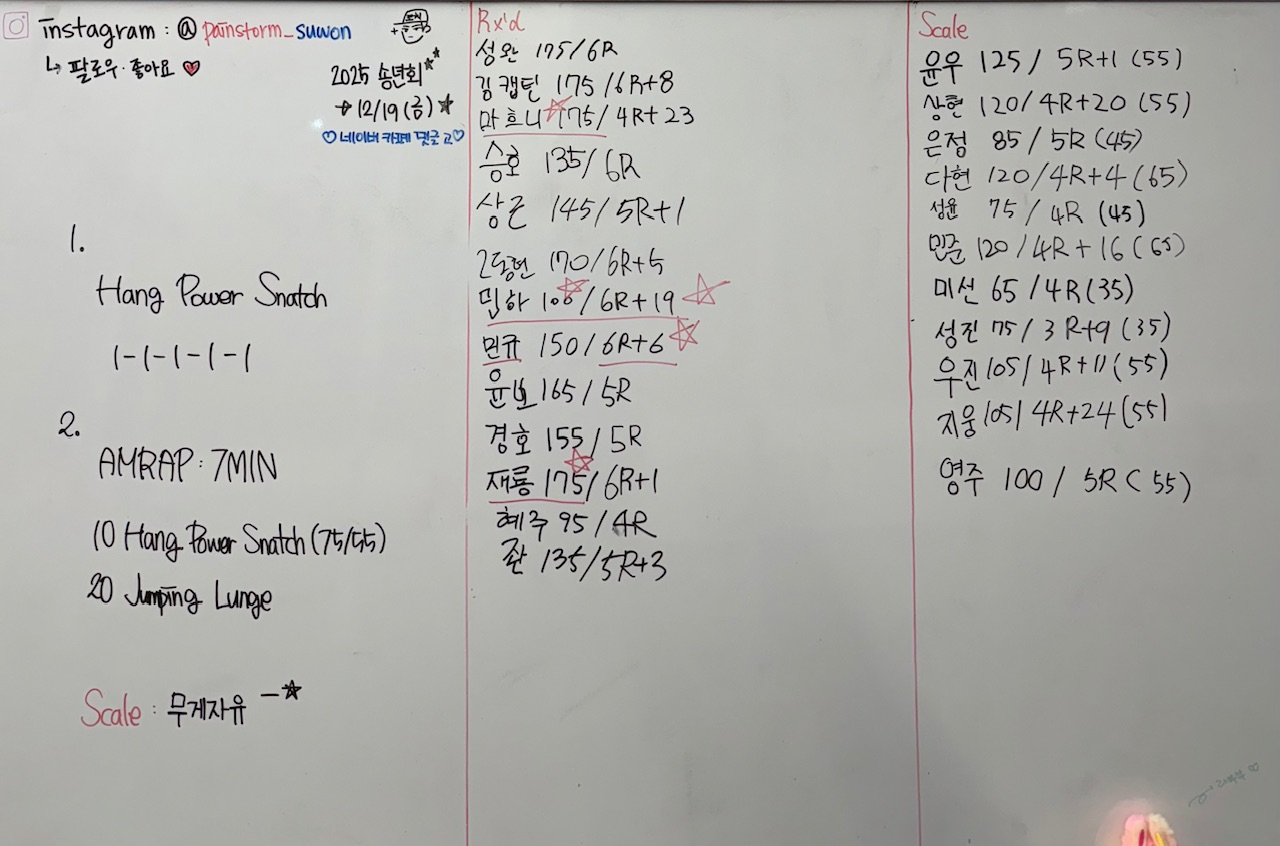 instagram : @ painstorm_suwon
↳ 팔로우·좋아요 ♥
2025 송년회★★
→ 12/19(금)★
♡네이버 카페 댓글 고♡
1.
Hang Power Snatch
1-1-1-1-1
2.
AMRAP : 7MIN
10 Hang Power Snatch (75/55)
20 Jumping Lunge
Scale : 무게자유 -★
Rx'd
성완 175/6R
김캡틴 175/6R+8
마흐니 175/4R+23
승호 135/6R
상근 145/5R+1
2동현 170/6R+5
민하 100/6R+19 ☆
민규 150/6R+6 ☆
윤보 165/5R
경호 155/5R
재룡 175/6R+1
혜주 95/4R
135/5R+3
Scale
윤우 125/ 5R+1 (55)
상현 120/4R+20 (55)
은정 85/5R (45)
다현 120/4R+4 (65)
성윤 75/4R (45)
민준 120/4R+16 (65)
미선 65/4R(35)
성진 75/3R+9 (35)
우진 105/4R+11 (55)
지웅 105/4R+24 (55)
영주 100/ 5R(55)